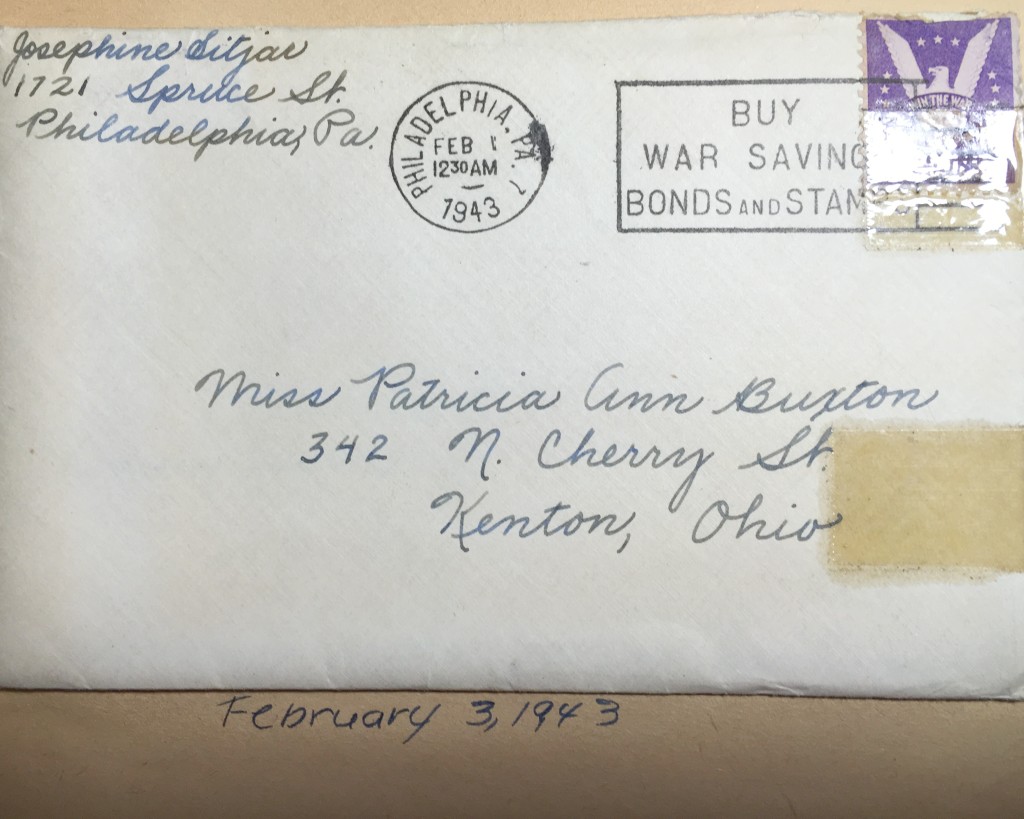 Josephine Sitjar
1721 Spruce St.
Philadelphia, Pa.
PHILADELPHIA, PA. 7
FEB 1
12 30 AM
1943
BUY
WAR SAVING
BONDS AND STAMPS
WIN THE WAR
Miss Patricia Ann Buxton
342 N. Cherry St.
Kenton, Ohio
February 3, 1943